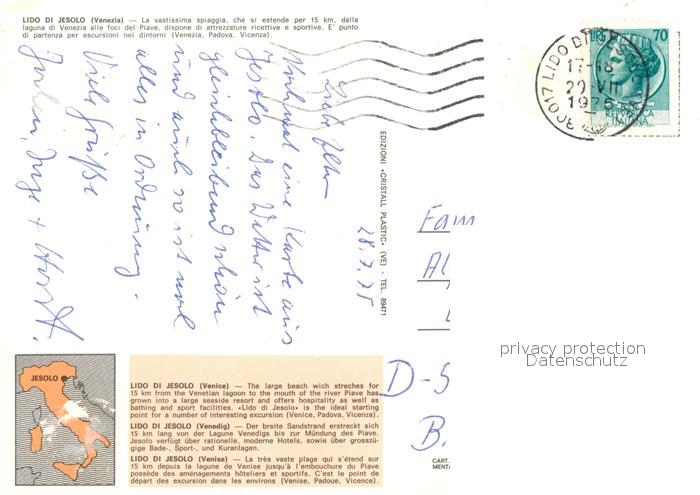 LIDO DI JESOLO (Venezia) — La vastissima spiaggia, che si estende per 15 km, dalla
laguna di Venezia alle foci del Piave, dispone di attrezzature ricettive e sportive. E' punto
di partenza per escursioni nei dintorni (Venezia, Padova, Vicenza).
LIRE 70
REPUBBLICA
ITALIANA
30017 LIDO DI JESOLO
17-18
29 VII
1975
28.7.75
Liebe
Nochmal eine Karte aus
Jesolo. Das Wetter ist
gleichbleibend schön
und auch so ist wol
alles in Ordnung.
Viele Grüße
Inge + Horst.
EDIZIONI «CRISTALL PLASTIC» (VE) - TEL. 89471
Fam
D-5
B.
CART
MENT
privacy protection
Datenschutz
JESOLO
LIDO DI JESOLO (Venice) — The large beach wich streches for
15 km from the Venetian lagoon to the mouth of the river Piave has
grown into a large seaside resort and offers hospitality as well as
bathing and sport facilities. «Lido di Jesolo» is the ideal starting
point for a number of interesting excursion (Venice, Padova, Vicenza).
LIDO DI JESOLO (Venedig) — Der breite Sandstrand erstreckt sich
15 km lang von der Lagune Venedigs bis zur Mündung des Piave.
Jesolo verfügt über rationelle, moderne Hotels, sowie über grosszü-
gige Bade-, Sport-, und Kuranlagen.
LIDO DI JESOLO (Venise) — La très vaste plage qui s'étend sur
15 km depuis la lagune de Venise jusqu'à l'embouchure du Piave
possède des aménagements hôteliers et sportifs. C'est le point de
départ des excursion dans les environs (Venise, Padoue, Vicence).